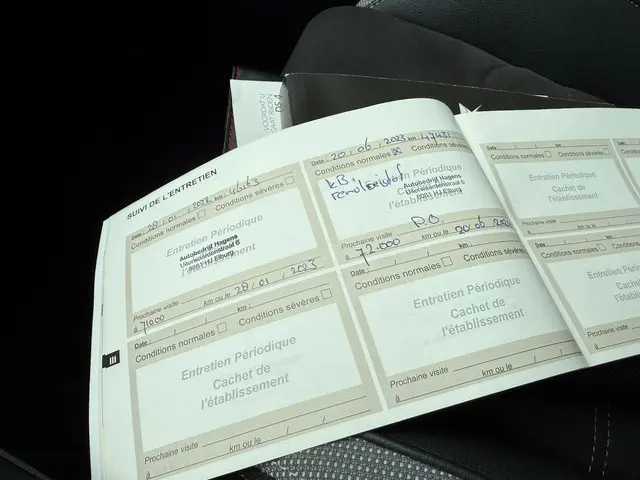 DS 4
SUIVI DE L'ENTRETIEN
Date : 28 / 01 / 2022 km : 46163
Conditions normales Conditions sévères :
Entretien Périodique
Autobedrijf Hagens
8081 HJ Elburg
Prochaine visite
à 71000 km ou le 28 / 01 / 2023
Date : 20 / 06 / 2023 km : 47431
Conditions normales
Entretien Périodique
KB:
remvloeistof
Autobedrijf Hagens
8081 HJ Elburg
Prochaine visite
à 72.000 km ou le 20 06
Date : / / km :
Conditions normales Conditions sévères :
Entretien Périodique
Cachet de
l'établissement
Prochaine visite
à km ou le / /
Conditions normales Conditions sévères :
Entretien Périodique
Cachet de
l'établissement
Prochaine visite
à km ou le / /
III
Date : / / km :
Conditions normales Conditions sévères :
Entretien Périodique
Cachet de
l'établissement
Prochaine visite
à km ou le / /
Date : / / km :
Conditions normales
Entretien Périodique
Cachet de
l'établissement
Prochaine visite
à